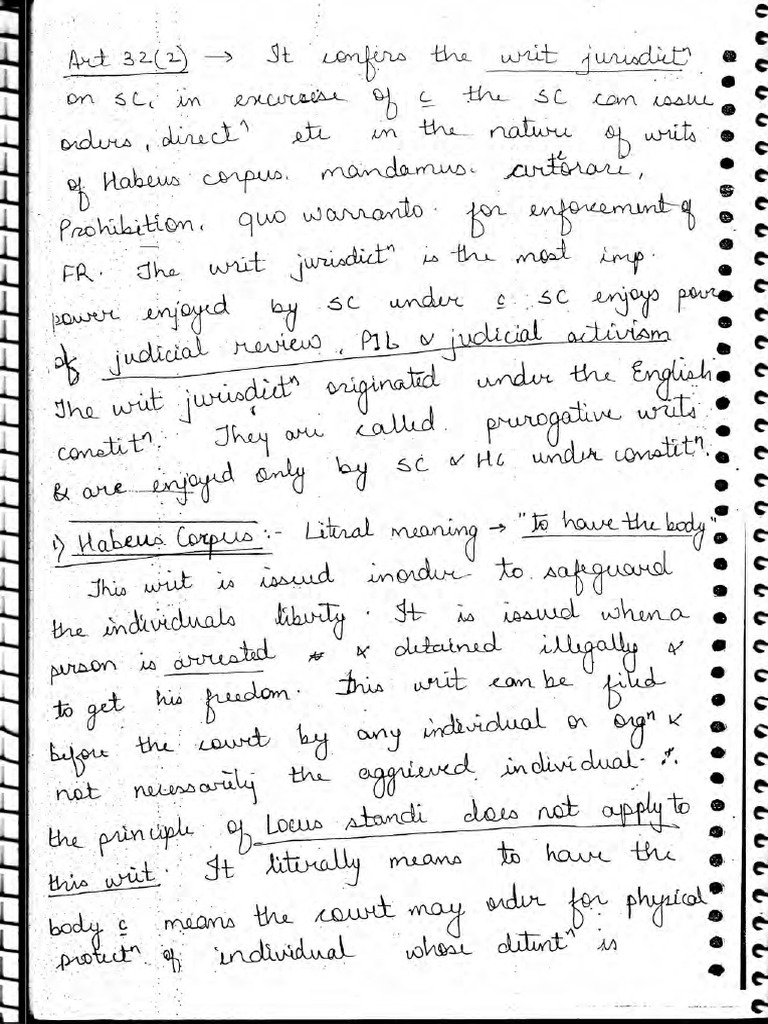 Art 32(2) → It confers the writ jurisdictⁿ
on SC, in excercise of c̲ the SC can issue
orders, directⁿ etc in the nature of writs
of Habeus corpus. mandamus. certorari,
Prohibition, quo warranto. for enforcement of
FR. The writ jurisdictⁿ is the most imp.
power enjoyed by SC under c̲ SC enjoys power
of judicial review, PIL & judicial activism
The writ jurisdictⁿ originated under the English
constitⁿ. They are called prerogative writs
& are enjoyed only by SC & HC under constitⁿ.
1) Habeus Corpus :- Literal meaning → "To have the body"
This writ is issued inorder to safeguard
the individuals liberty. It is issued when a
person is arrested & detained illegally &
to get his freedom. This writ can be filed
before the court by any individual or orgⁿ &
not necessarily the aggrieved individual. ∴
the principle of Locus standi does not apply to
this writ. It literally means to have the
body c̲ means the court may order for physical
protectⁿ of individual whose detentⁿ is